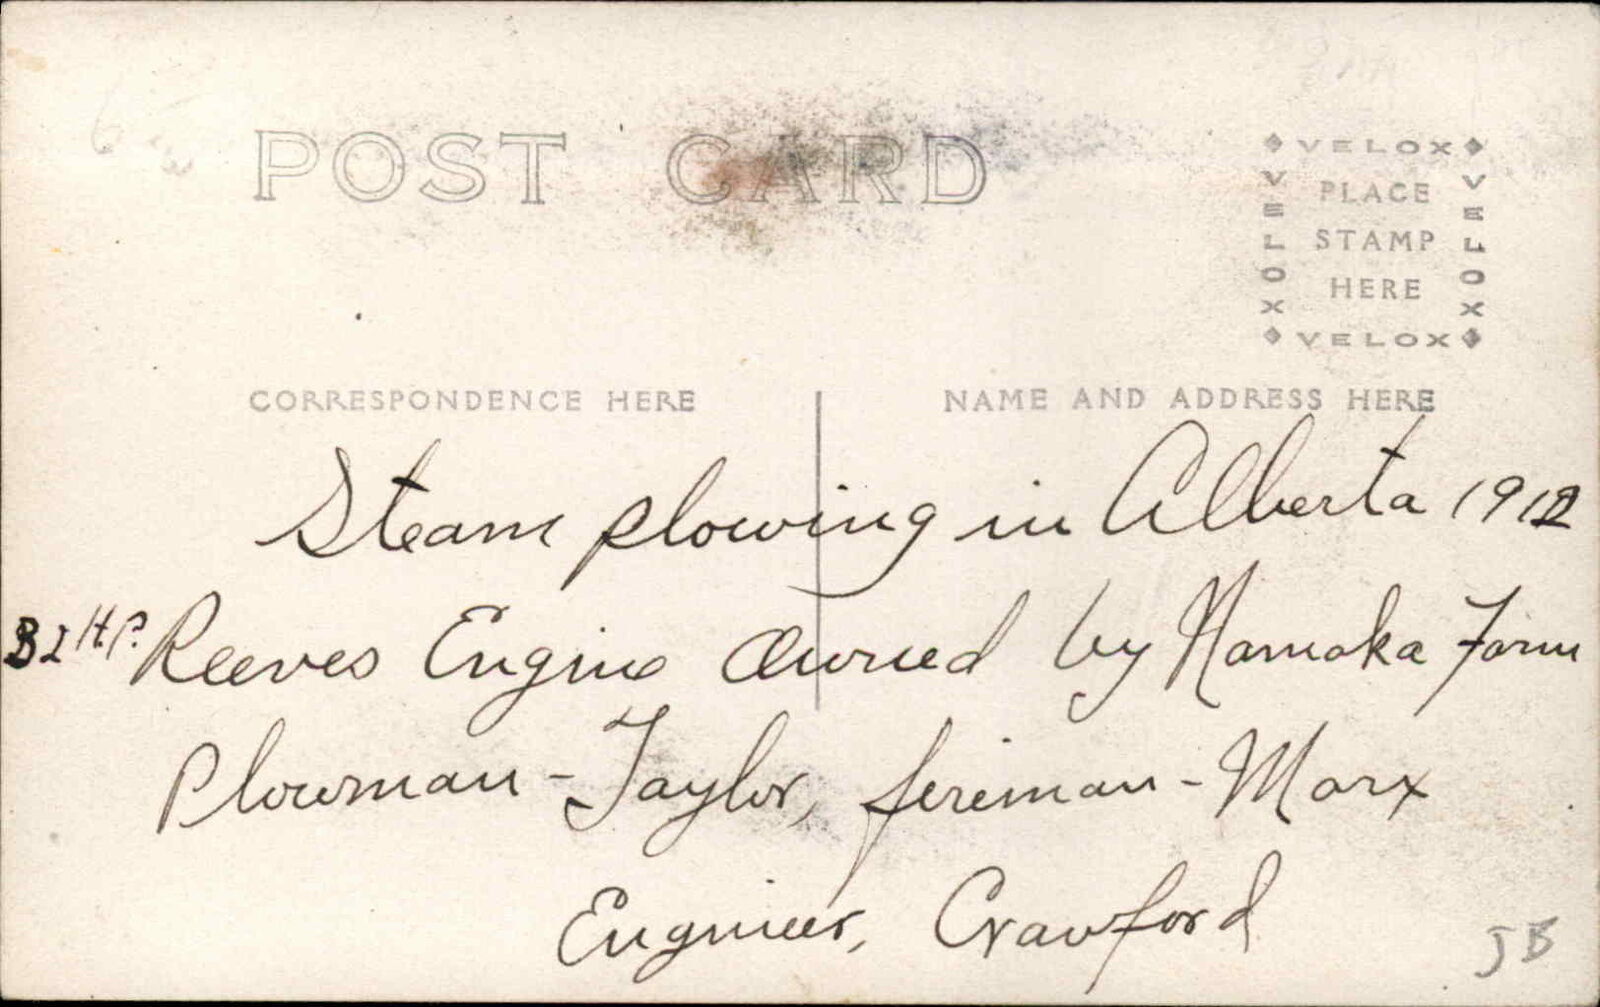 POST CARD
VELOX
VELOX PLACE VELOX
STAMP
HERE
VELOX
CORRESPONDENCE HERE
NAME AND ADDRESS HERE
Steam plowing in Alberta 1912
32 H.P. Reeves Engine Owned by Namaka Farm
Plowman - Taylor, fireman - Marx
Engineer, Crawford
JB